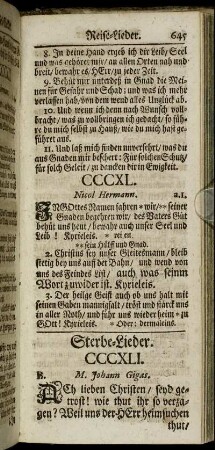 Reise-Lieder. 645
8. In deine Hand ergeb ich dir Leib, Seel
und was gehöret mir/ an allen Orten nah und
breit, bewahr es HErr/zu jeder Zeit.
9. Behüt mir unterdeß in Gnad die Meinen
für Gefahr und Schad: und was ich mehr
verlassen hab/von dem wend alles Unglück ab.
10. Und wenn ich denn nach Wunsch vollbracht,
was zu vollbringen ich gedacht/ so führe
du mich selbst zu Hauß/ wie du mich hast geführet
aus.
11. Und laß mich finden unversehrt/ was du
aus Gnaden mir beschert: Für solchen Schutz/
für solch Geleit/ zu dancken dir in Ewigkeit.
CCCXL.
Nicol Hermann. a.1.
IN GOttes Namen fahren * wir/ ** seiner
Gnaden begehren wir/ des Vaters Güt
behüt uns heut/ bewahr auch unser Seel und
Leib! Kyrieleis. * rei en.
** sein Hülff und Gnad.
2. Christus sey unser Gleitesmann/ bleib
stetig bey uns auf der Bahn/ und wend von
uns des Feindes List/ auch was seinm
Wort zuwider ist. Kyrieleis.
3. Der heilge Geist auch ob uns halt mit
seinen Gaben mannigfalt/ tröst und stärck uns
in aller Noth/ und führ uns wieder heim * zu
GOtt! Kyrieleis. * Oder: dermaleins.
Sterbe-Lieder.
CCCXLI.
B. M. Johann Gigas.
ACh lieben Christen/ seyd getrost!
wie thut ihr so verzagen?
Weil uns der HErr heimsuchen
thut/